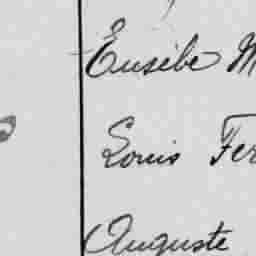 Eusèbe M
Louis Fer
Auguste